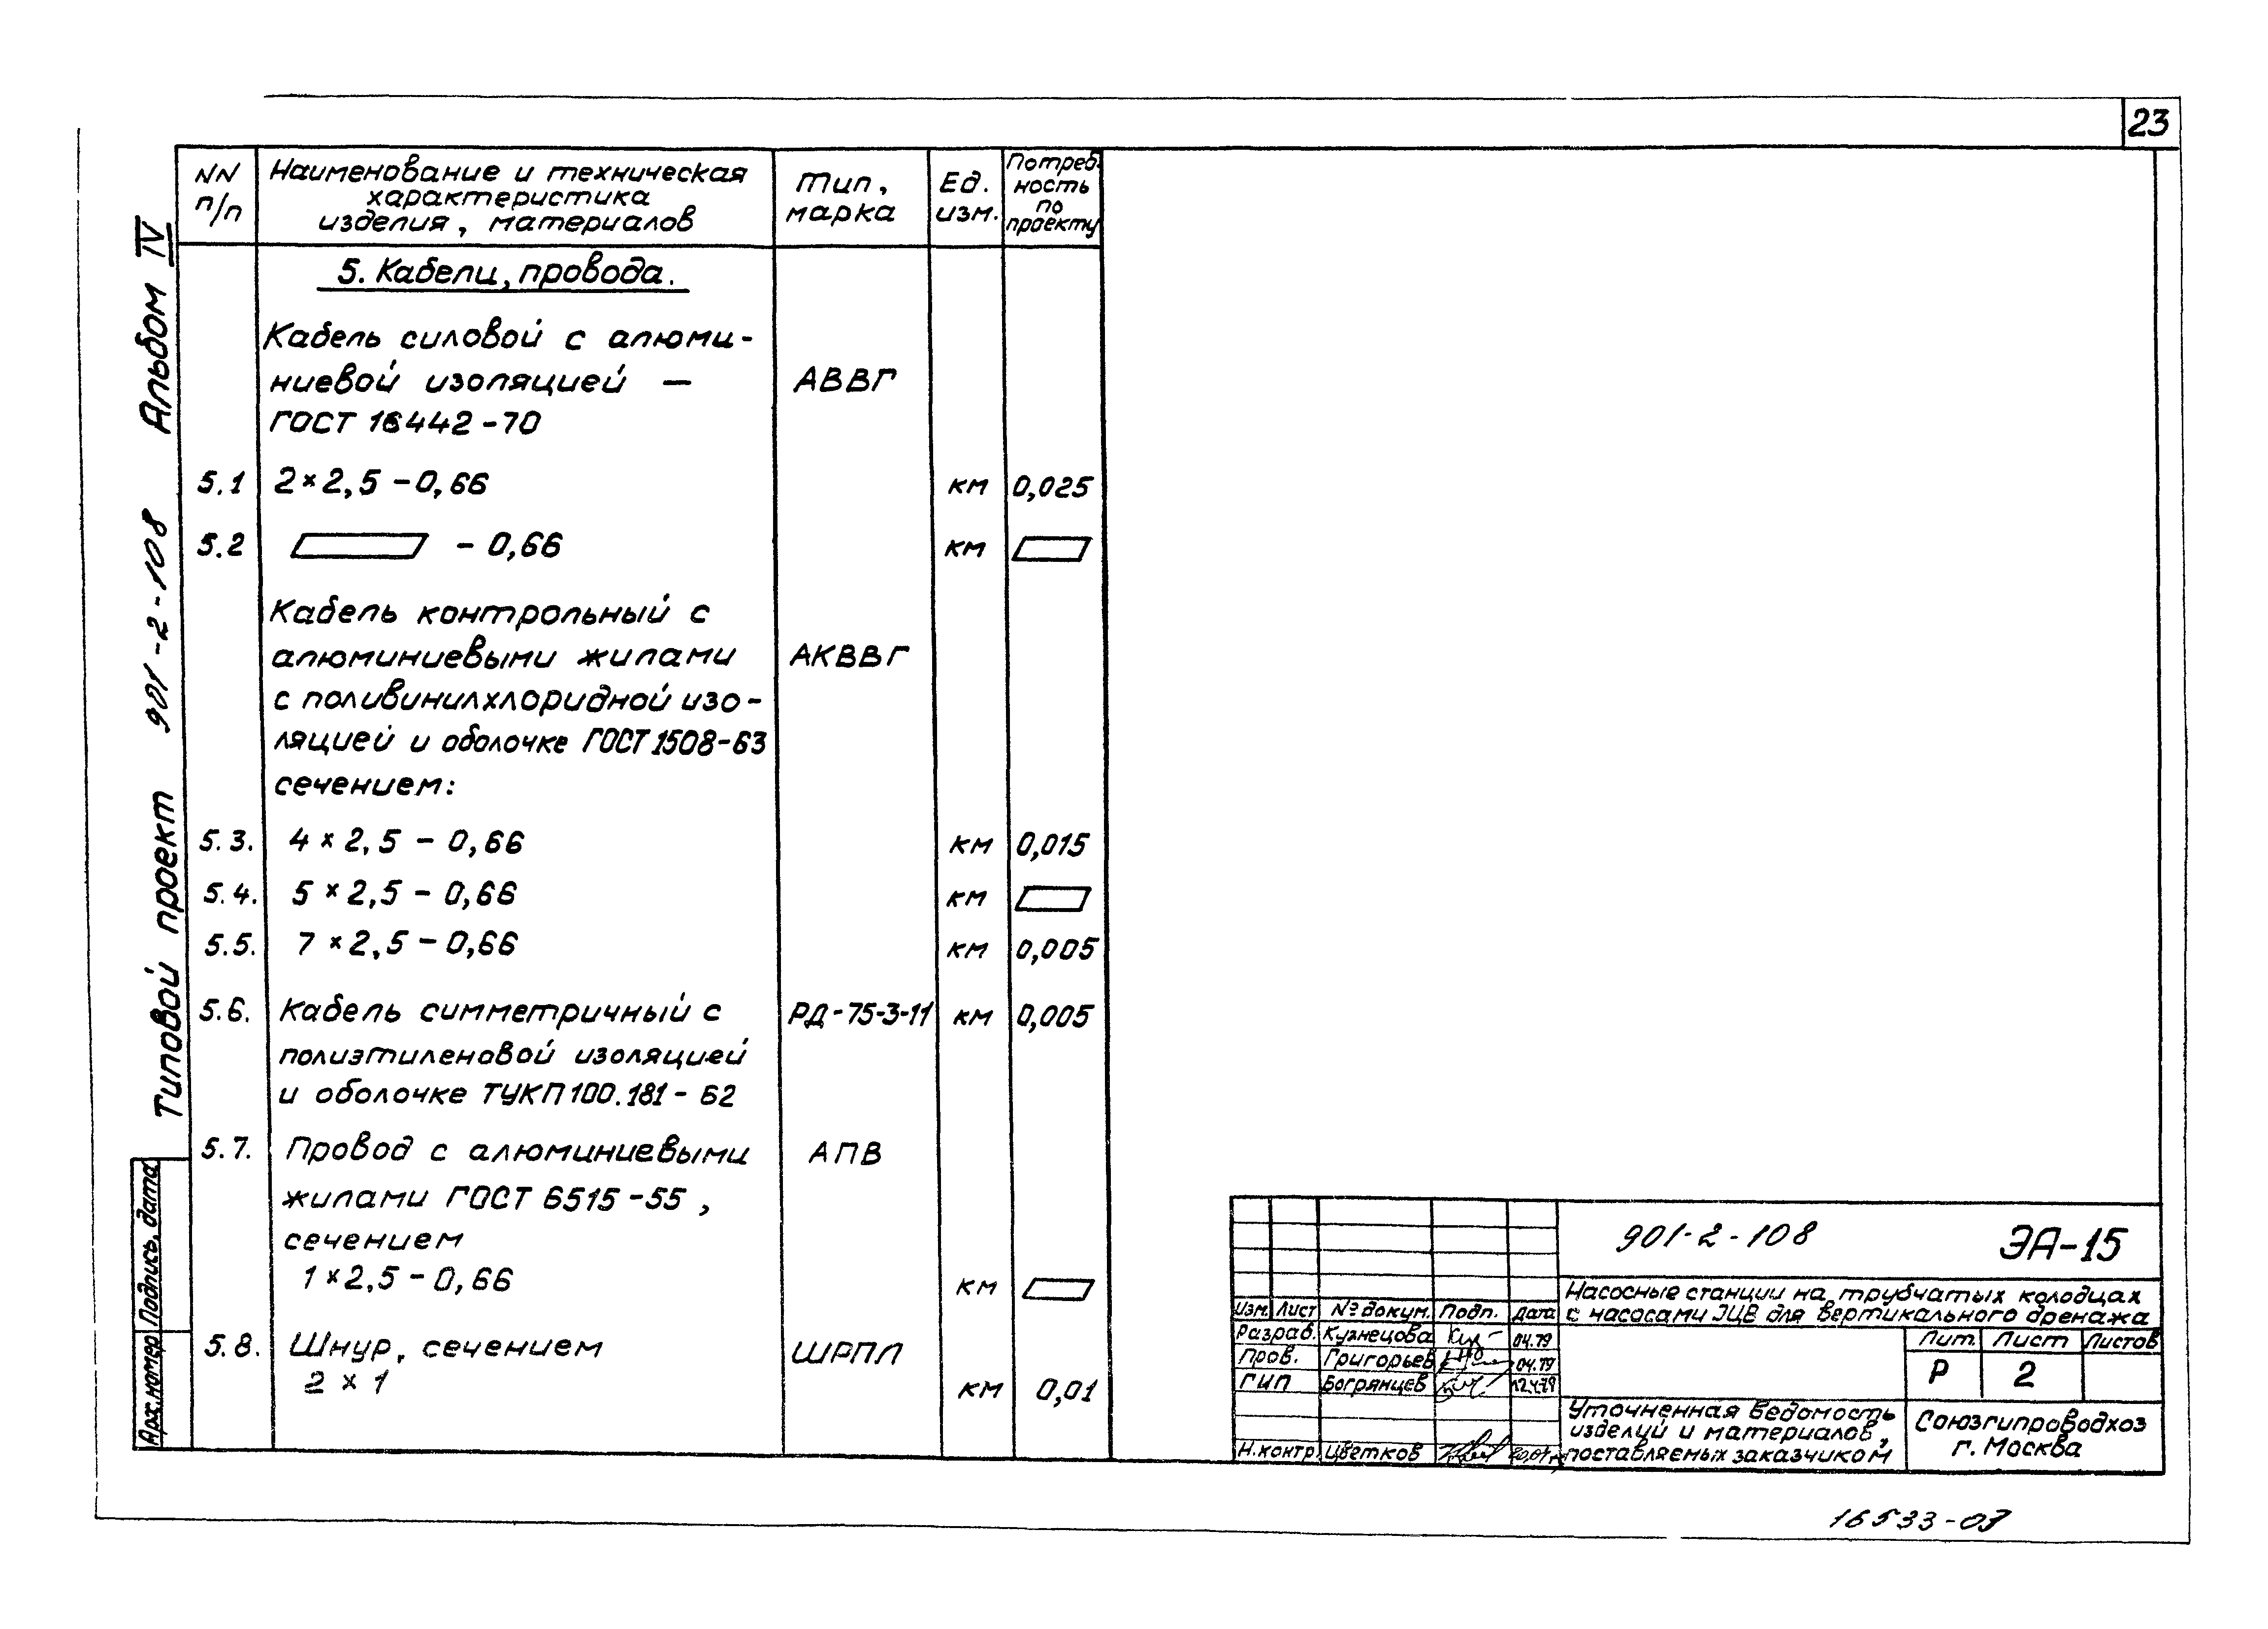 23
Типовой проект 901-2-108 Альбом IV
NN п/п
Наименование и техническая
характеристика
изделия, материалов
Тип,
марка
Ед.
изм.
Потреб-
ность
по
проекту
5. Кабели, провода.
Кабель силовой с алюми-
ниевой изоляцией — АВВГ
ГОСТ 16442-70
5.1 2×2,5 - 0,66 км 0,025
5.2 - 0,66 км
Кабель контрольный с
алюминиевыми жилами АКВВГ
с поливинилхлоридной изо-
ляцией и оболочке ГОСТ 1508-63
сечением:
5.3. 4×2,5 - 0,66 км 0,015
5.4. 5×2,5 - 0,66 км
5.5. 7×2,5 - 0,66 км 0,005
5.6. Кабель симметричный с РД-75-3-11 км 0,005
полиэтиленовой изоляцией
и оболочке ТУКП 100.181-62
5.7. Провод с алюминиевыми АПВ
жилами ГОСТ 6515-55,
сечением
1×2,5 - 0,66 км
5.8. Шнур, сечением ШРПЛ
2×1 км 0,01
Арх. номер Подпись, дата
901-2-108 ЭА-15
Насосные станции на трубчатых колодцах
с насосами ЭЦВ для вертикального дренажа
Изм. Лист № докум. Подп. Дата
Разраб. Кузнецова 04.79
Пров. Григорьев 04.79
ГИП Богрянцев
Н.контр. Цветков
Лит. Лист Листов
Р 2
Уточненная ведомость
изделий и материалов,
поставляемых заказчиком
Союзгипроводхоз
г. Москва
16533-03